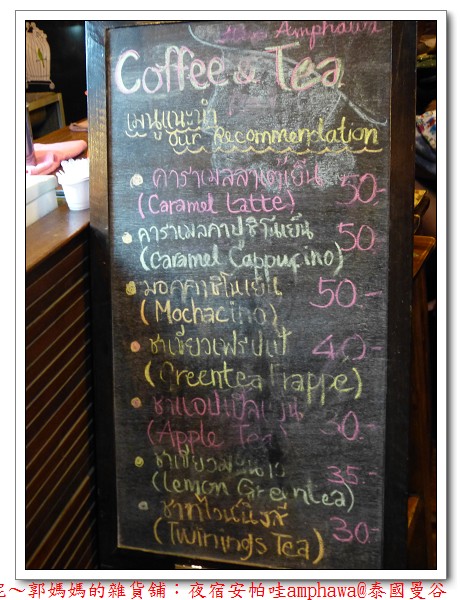 Amphawa
Coffee & Tea
เมนูแนะนำ
Our Recommendation
คาราเมลลาเต้เย็น 50.-
(Caramel Latte)
คาราเมลคาปูชิโนเย็น 50.-
(Caramel Cappucino)
มอคคาชิโนเย็น 50.-
(Mochacino)
ชาเขียวเฟรปเป้ 40.-
(Greentea Frappe)
ชาแอปเปิ้ลเย็น 30.-
(Apple Tea)
ชาเขียวมะนาว 35.-
(Lemon Greentea)
ชาทไวน์นิงส์ 30.-
(Twinings Tea)
~郭媽媽的雜貨鋪：夜宿安帕哇amphawa@泰國曼谷